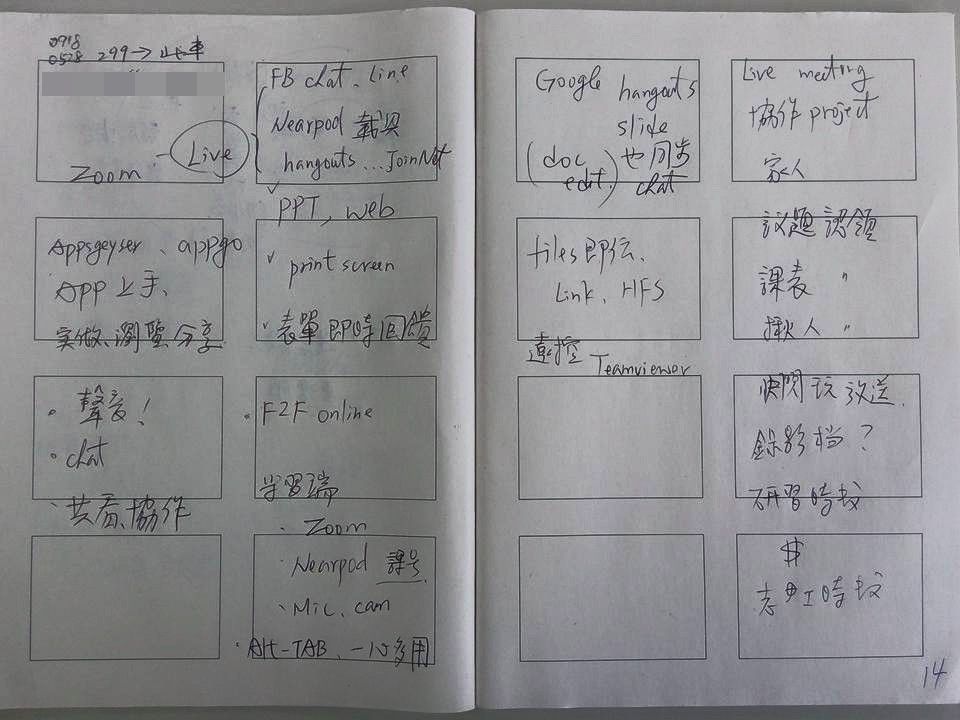 0918
0528 299→
Zoom
Live
FB chat、Line
Nearpod 載具
hangouts...JoinNet
PPT, web
Appsgeyser、appgo
APP 上手、
實做、瀏覽分享
print screen
表單即時回饋
聲音!
chat
共看、協作
F2F online
学習端
Zoom
Nearpod 課号
Mic. cam
Alt-TAB、一心多用
Google hangouts
slide
(doc edit.) 也同步
chat
files即伝、
Link、HFS
遠控 Teamviewer
Live meeting
協作 project
家人
議題認領
課表 〃
揪人 〃
快閃玩放送
錄影档?
研習時数
$
志工時数
14